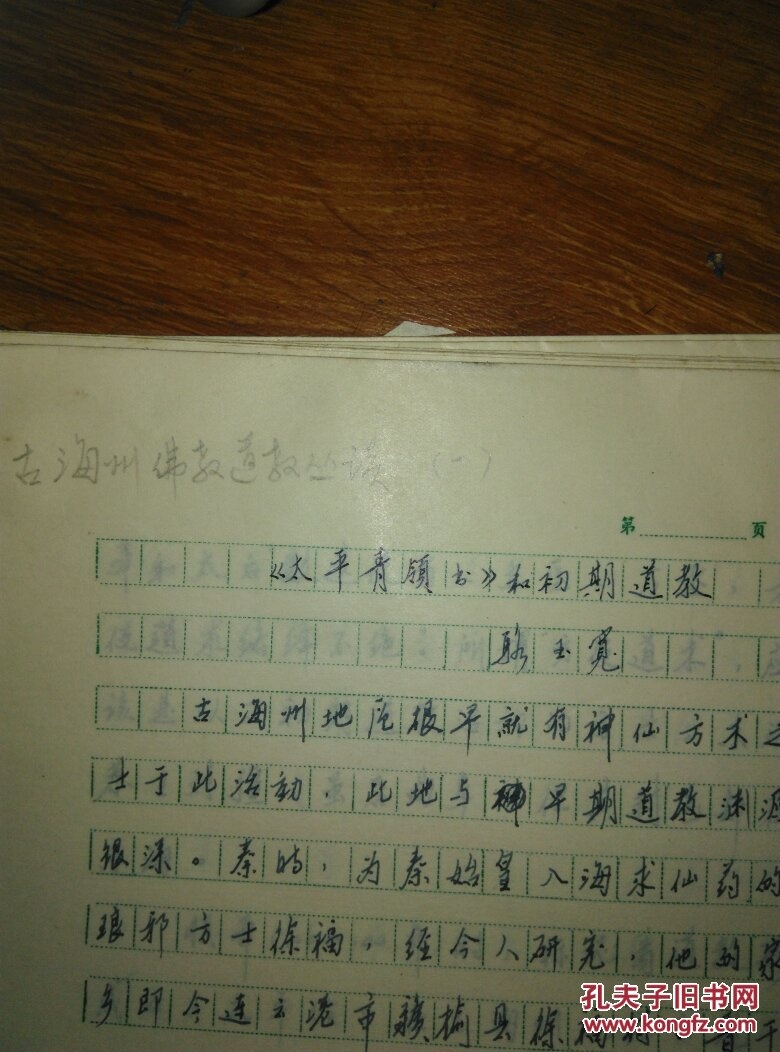 古海州佛教道教丛谈（一）
第 页
《太平青领书》和初期道教
骆玉宽
古海州地区很早就有神仙方术之
士于此活动，此地与早期道教渊源
很深。秦时，为秦始皇入海求仙药的
琅邪方士徐福，经今人研究，他的家
乡即今连云港市赣榆县徐福
孔夫子旧书网
www.kongfz.com